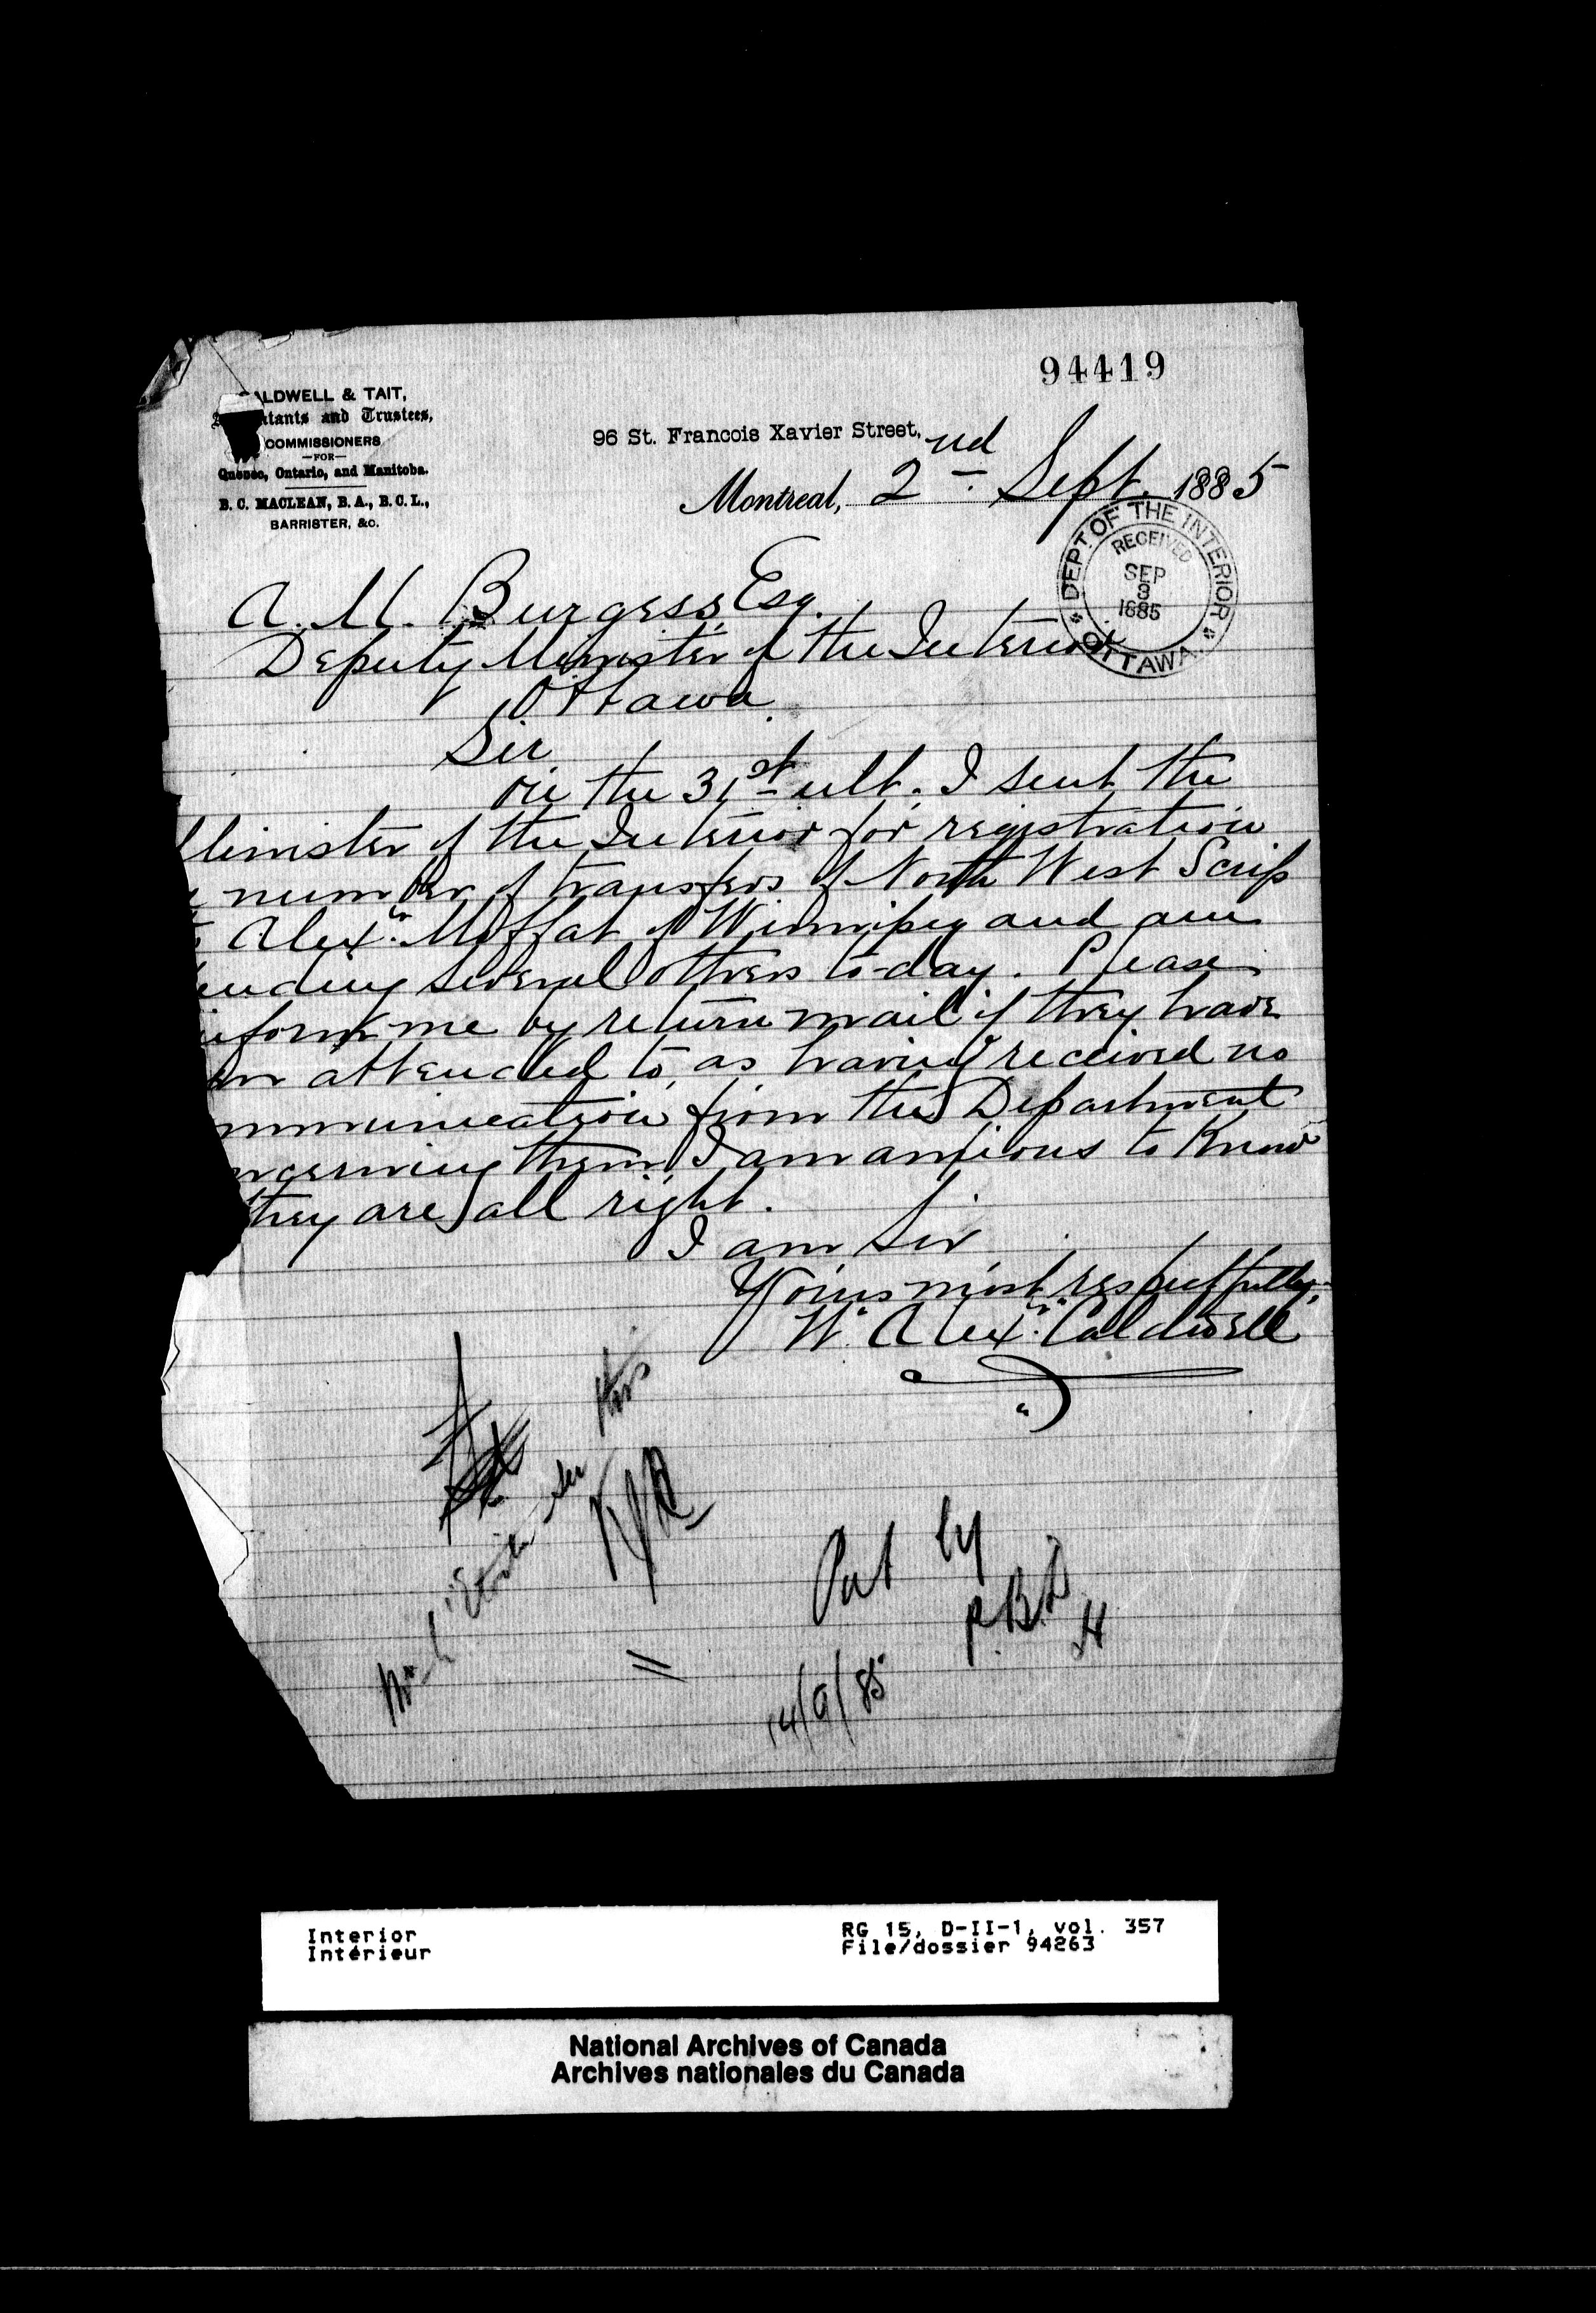 94419
ALDWELL & TAIT,
ntants and Trustees,
COMMISSIONERS
—FOR—
Quebec, Ontario, and Manitoba.
B. C. MACLEAN, B. A., B. C. L.,
BARRISTER, &c.
96 St. Francois Xavier Street,
Montreal, 2nd Sept. 1885
DEPT. OF THE INTERIOR
RECEIVED
SEP
3
1885
OTTAWA
A. M. Burgess, Esq.
Deputy Minister of the Interior
Ottawa
Sir
On the 31st ult. I sent the
Minister of the Interior for registration
number of transfers of North West Scrip
Alexr. Moffat of Winnipeg and am
ending several others to-day. Please
nform me by return mail if they have
en attended to, as having received no
mmunication from the Department
ncerning them I am anxious to know
they are all right.
I am Sir
Yours most respectfully,
W. Alexr. Caldwell
Put by
P.B.D
14/9/85
Interior
Intérieur
RG 15, D-II-1, vol. 357
File/dossier 94263
National Archives of Canada
Archives nationales du Canada